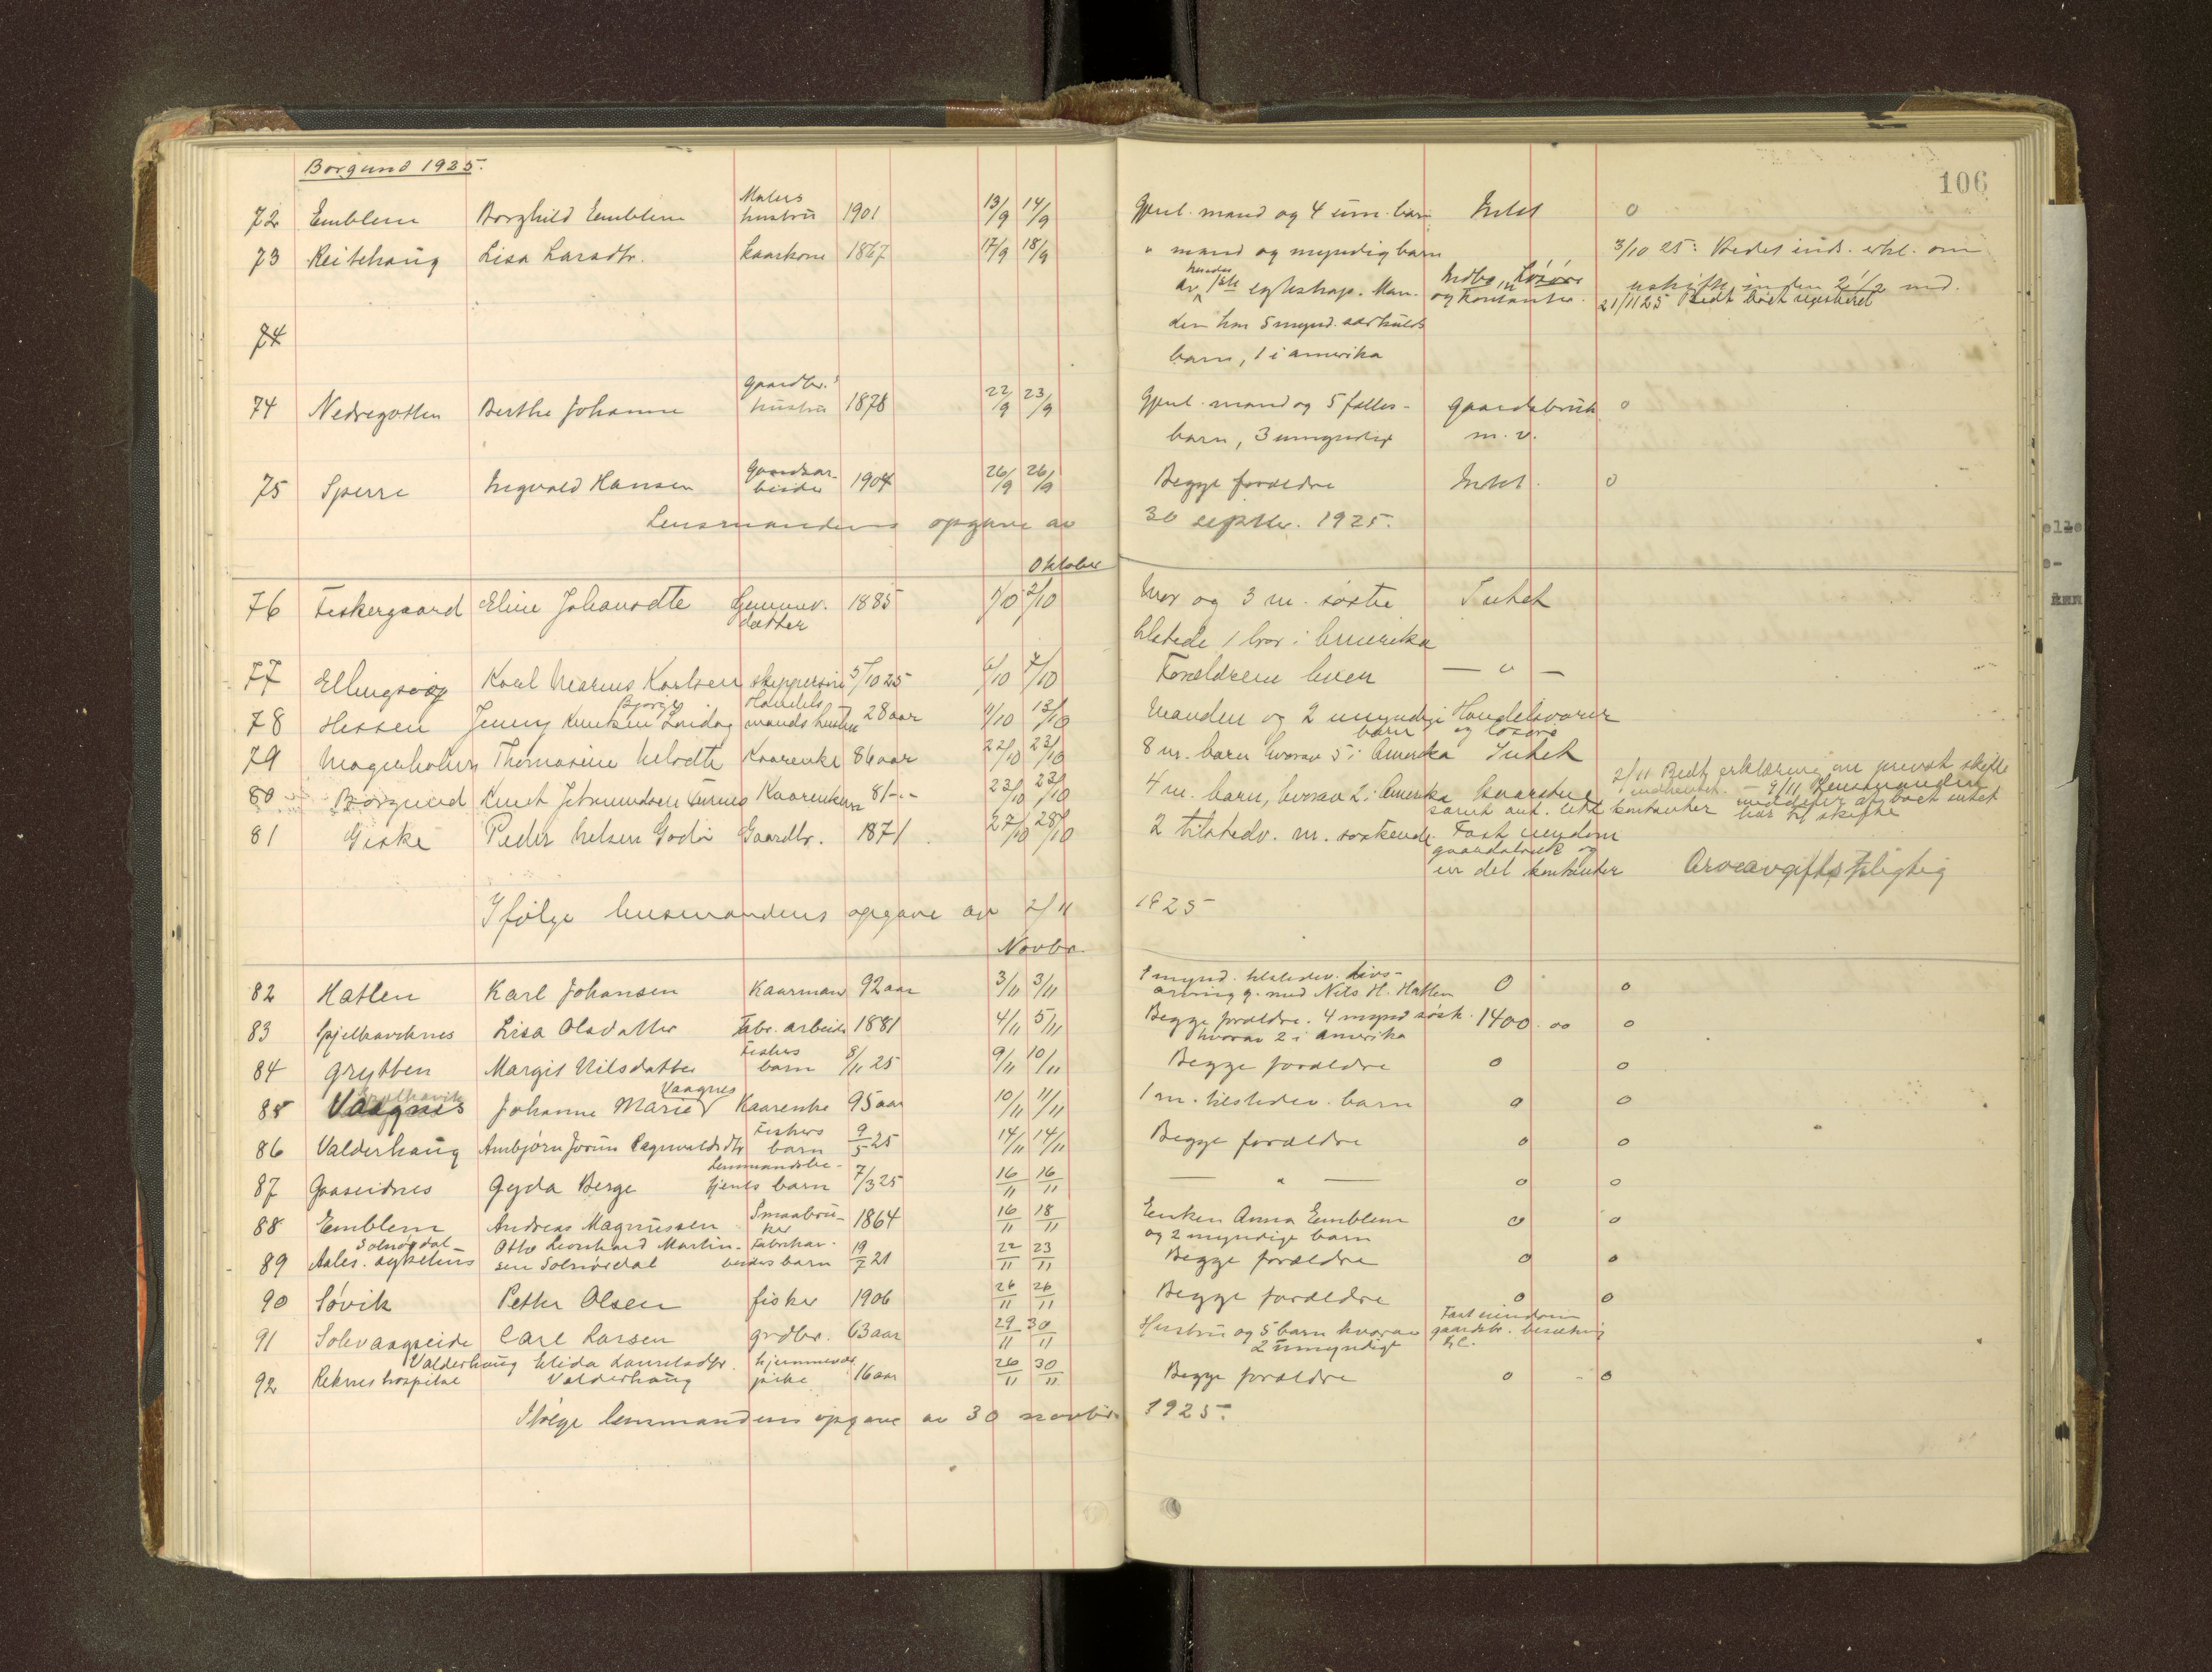 Borgund 1925.
106
72 Emblem Borghild Emblem Malers hustru 1901 13/9 14/9 Gjenl. mand og 4 um. barn Intet 0
73 Reitehaug Lisa Larsdtr. kaarkone 1867 17/9 18/9 " mand og myndig barn 3/10 25: Bedes inds. erkl. om
av hendes 1ste egteskap. Man- Indbo, Løsøre og kontanter. uskifte inden 2 1/2 md.
21/11 25 Bedt boet registreret
74 den har 5 mynd. særkulds
barn, 1 i amerika
74 Nedregotten Berthe Johanne Gaardbr.s hustru 1878 22/9 23/9 Gjenl. mand og 5 fælles- gaardsbruk 0
barn, 3 umyndige m. v.
75 Sperre Ingvald Hansen Gaardsar- beider 1904 26/9 26/9 Begge forældre Intet. 0
Lensmandens opgave av 30 septbr. 1925.
Oktober
76 Fiskergaard Eline Johansdtr Hjemmev. datter 1885 1/10 2/10 Mor og 3 m. søstre Intet
tilstede 1 bror i Amerika
77 Ellingsvåg Karl Marius Karlsen skippersøn 5/10 25 6/10 7/10 Forældrene lever — " —
78 Hessen Jenny Knutsen Handels- mands hustru 28 aar 11/10 13/10 Manden og 2 umyndige barn Handelsvarer og løsøre
79 Magerholm Thomasine Nilsdtr Kaarenke 86 aar 22/10 23/10 8 m. barn hvorav 5 i Amerika Intet
80 Borgund Knut Jetmundsen Kaarenkem 81 - " - 23/10 23/10 4 m. barn, hvorav 2 i Amerika 2/11 Bedt erklæring om privat skifte
indhentet. — 9/11 Lensmanden
samt ant. litt kontanter meddeler at boet intet
har til skifte
81 Giske Peder Nelsen Godø Gaardbr. 1871. 27/10 28/10 2 tilstedv. m. søskende Fast eiendom
gaardsbruk og
en del kontanter Arveavgiftspligtig
Ifølge lensmandens opgave av 2/11 1925
Novbr.
82 Hatlen Karl Johansen Kaarmand 92 aar 3/11 3/11 1 mynd. tilstedev. livs- 0 0
arving g. med Nils H. Hatlen
83 Spjelkaviknes Lisa Olsdatter Fabr. arbeider 1881 4/11 5/11 Begge forældre. 4 mynd søsk. 1400.00 0
hvorav 2 i Amerika
84 Grytten Margit Nilsdatter Fiskers barn 8/11 25 9/11 10/11 Begge forældre 0 0
85 Vaagnes Johanne Marie Vaagnes Kaarenke 95 aar 10/11 11/11 1 m. tilstedev. barn 0 0
86 Valderhaug Ambjørn Jorun Ragnvaldsdtr Fiskers barn 9/5 25 14/11 14/11 Begge forældre 0 0
87 Gaaseidnes Gyda Berge Lensmandsbe- tjents barn 7/3 25 16/11 16/11 — " — 0 0
88 Emblem Andreas Magnussen Smaabru- ker 1864 16/11 18/11 Enken Anna Emblem 0 0
og 2 myndige barn
89 Solnørdal Aales. sykehus Otto Leonhard Martin- sen Solnørdal Fabrikar- beiders barn 19/7 21 22/11 23/11 Begge forældre 0 0
90 Søvik Petter Olsen fisker 1906 26/11 26/11 Begge forældre 0 0
91 Solevaagseide Carl Larsen grdbr. 63 aar 29/11 30/11 Hustru og 5 barn hvorav Fast eiendom
2 umyndige gaardsbr. besætning
92 Valderhaug Reknes hospital Elida Lauritsdtr. Valderhaug hjemmevær. pike 16 aar 26/11 30/11 Begge forældre 0 - 0
Ifølge lensmandens opgave av 30 novbr. 1925.